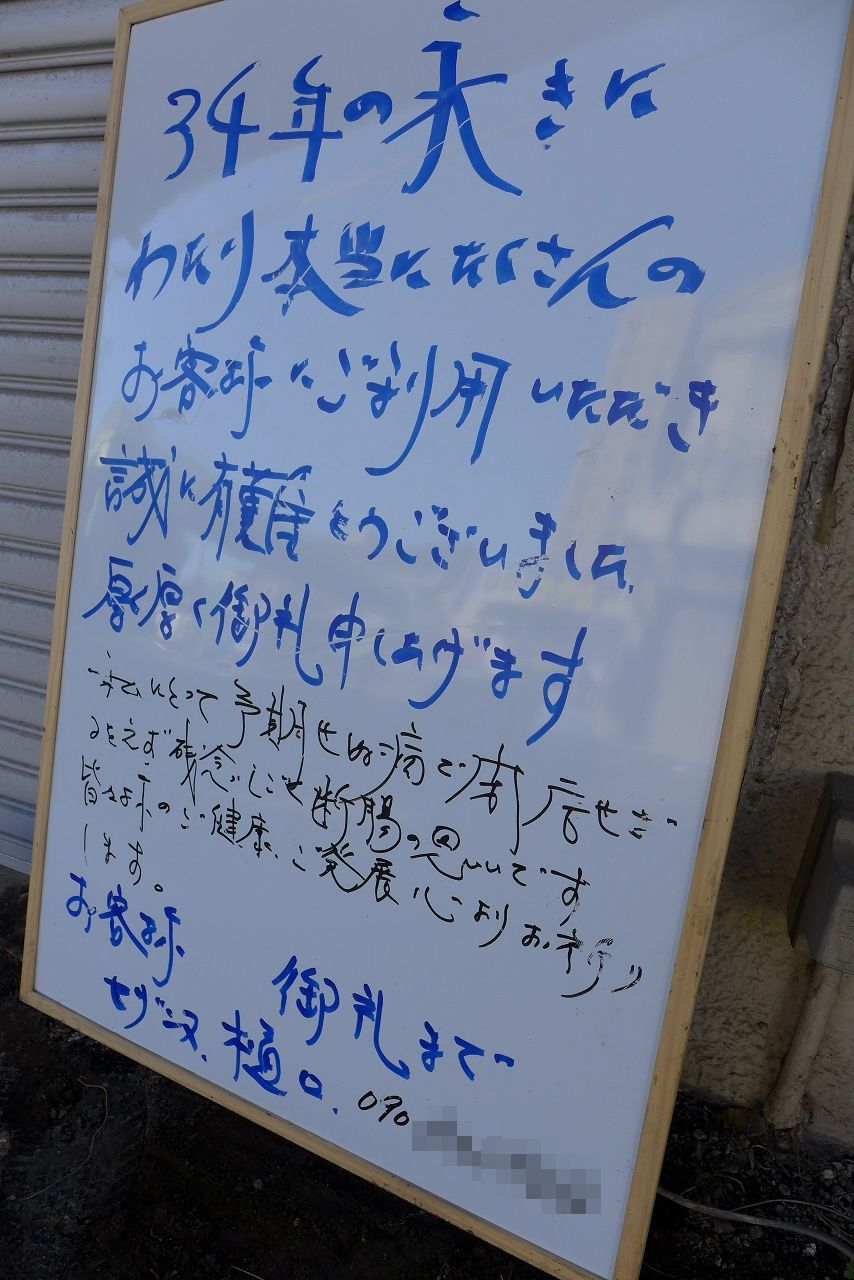 34年の永きに
わたり本当にたくさんの
お客様にご利用いただき
誠に有難とうございました。
厚く厚く御礼申しあげます
予期せぬ病で閉店せざ
るをえず残念しごせ断腸の思いです
皆々様のご健康、ご発展心よりお祈り
します。
お客様
御礼まで
セザンヌ.樋口. 090